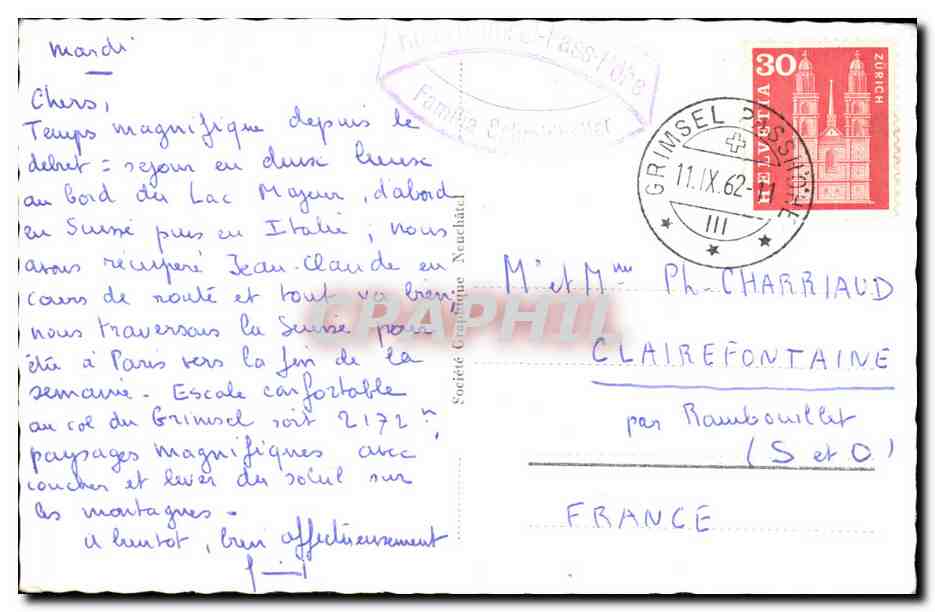 mardi
Chers,
Temps magnifique depuis le
début = séjour en deux lieux
au bord du Lac Majeur, d'abord
en Suisse puis en Italie ; nous
avons récupéré Jean-Claude en
cours de route et tout va bien,
nous traversons la Suisse pour
été à Paris vers la fin de la
semaine - Escale confortable
au col du Grimsel soit 2172 m,
paysages magnifiques avec
coucher et lever du soleil sur
les montagnes -
A bientôt, bien affectueusement
Société Graphique Neuchâtel
-Pass-Höhe
Familie
30
HELVETIA
ZÜRICH
GRIMSEL PASSHÖHE
11.IX.62-11
III
Mr et Mme Ph. CHARRIAUD
CLAIREFONTAINE
par Rambouillet
(S et O)
FRANCE
CPAPHIL